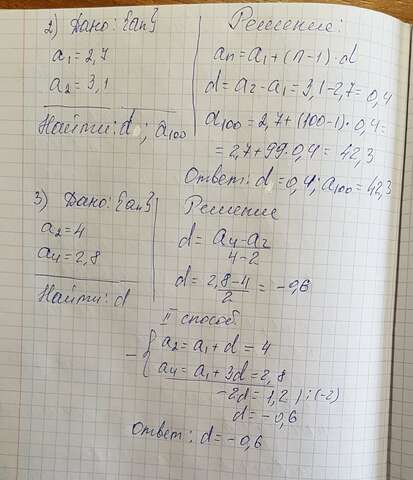 2) Дано: {an}
a₁ = 2,7
a₂ = 3,1
Найти: d; a₁₀₀
Решение:
an = a₁ + (n-1) · d
d = a₂ - a₁ = 3,1 - 2,7 = 0,4
a₁₀₀ = 2,7 + (100-1) · 0,4 =
= 2,7 + 99 · 0,4 = 42,3
Ответ: d = 0,4; a₁₀₀ = 42,3
3) Дано: {an}
a₂ = 4
a₄ = 2,8
Найти: d
Решение
d = (a₄ - a₂)/(4 - 2)
d = (2,8 - 4)/2 = -0,6
II способ
- { a₂ = a₁ + d = 4
a₄ = a₁ + 3d = 2,8
-2d = 1,2 | : (-2)
d = -0,6
Ответ: d = -0,6